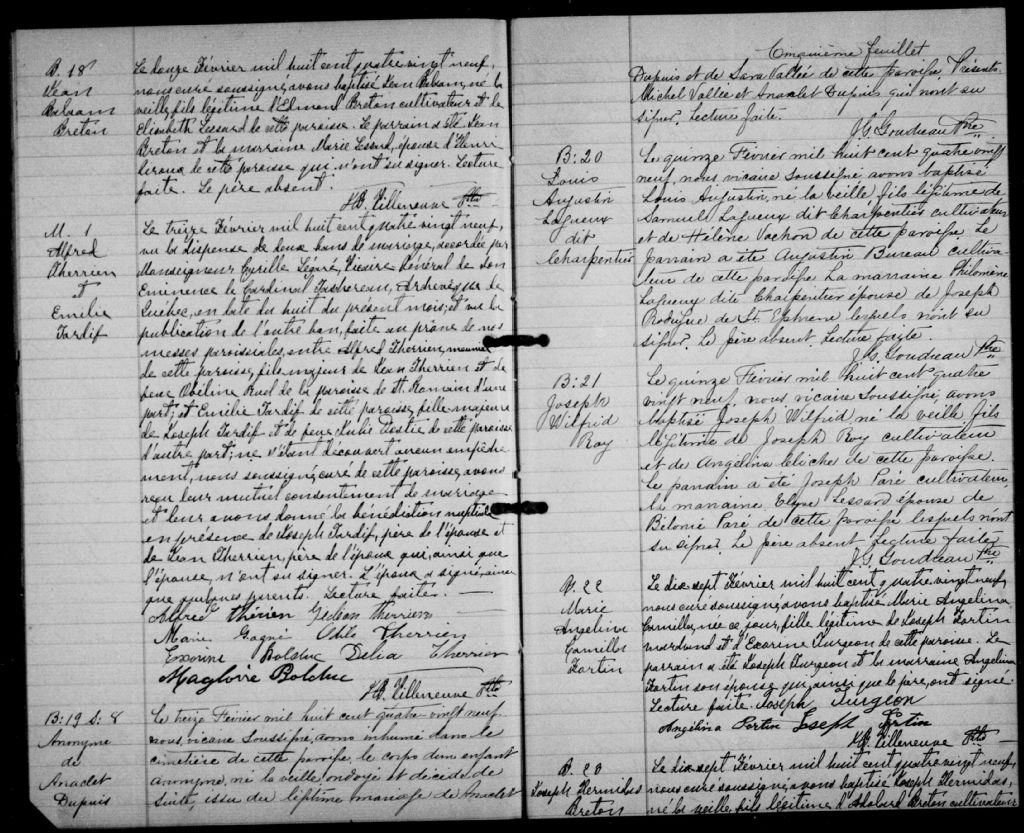 B. 18
Jean
Balsam
Breton
Le douze Février mil huit cent quatre vingt neuf,
nous curé soussigné, avons baptisé Jean Balsam, né la
veille, fils légitime d'Edmond Breton cultivateur et de
Elisabeth Lessard de cette paroisse. Le parrain a été Jean
Breton et la marraine Marie Lessard, épouse d'Henri
Giroux de cette paroisse qui n'ont su signer. Lecture
faite. Le père absent.
JB. Villeneuve Ptre
M. 1
Alfred
Therrien
et
Emilie
Tardif
Le treize Février mil huit cent quatre vingt neuf,
vu la dispense de deux bans de mariage, accordée par
Monseigneur Cyrille Légaré, Vicaire Général de Son
Eminence le Cardinal Taschereau, Archevêque de
Québec, en date du huit du présent mois; et vu la
publication de l'autre ban, faite au prône de nos
messes paroissiales, entre Alfred Therrien, meunier
de cette paroisse, fils majeur de Jean Therrien et de
feue Obéline Ruel de la paroisse de St. Romain d'une
part; et Emilie Tardif de cette paroisse, fille majeure
de Joseph Tardif et de feue Julie de cette paroisse
d'autre part; ne s'étant découvert aucun empêche-
ment, nous soussigné, curé de cette paroisse, avons
reçu leur mutuel consentement de mariage
et leur avons donné la bénédiction nuptiale
en présence de Joseph Tardif, père de l'épouse et
de Jean Therrien, père de l'époux qui, ainsi que
l'épouse, n'ont su signer. L'époux a signé, ainsi
que quelques parents. Lecture faite.
Alfred Thérien Gédéon Therrien
Marie Gagné Therrien
Exorine Bolduc Délia Therrien
Magloire Bolduc
JB. Villeneuve Ptre
B: 19 S: 8
Anonyme
de
Anaclet
Dupuis
Le treize Février mil huit cent quatre-vingt neuf
nous, vicaire soussigné, avons inhumé dans le
cimetière de cette paroisse, le corps d'un enfant
anonyme, né la veille ondoyé et décédé de
suite, issu du légitime mariage de Anaclet
Cinquième feuillet
Dupuis et de Sara Vallée de cette paroisse. Présents
Michel Vallée et Anaclet Dupuis qui n'ont su
signer. Lecture faite.
J. G. Goudreau Ptre
B: 20
Louis
Augustin
Lagueux
dit
Charpentier
Le quinze Février mil huit cent quatre vingt
neuf, nous vicaire soussigné avons baptisé
Louis Augustin, né la veille, fils légitime de
Samuel Lagueux dit Charpentier cultivateur
et de Hélène Vachon de cette paroisse. Le
parrain a été Augustin Bureau cultiva
teur de cette paroisse La marraine Philomène
Lagueux dite Charpentier épouse de Joseph
Rodrigue de St. Ephrem lesquels n'ont su
signer. Le père absent. Lecture faite.
J. G. Goudreau Ptre
B: 21
Joseph
Wilfrid
Roy
Le quinze Février mil huit cent quatre
vingt neuf, nous vicaire soussigné, avons
baptisé Joseph Wilfrid né la veille fils
légitime de Joseph Roy cultivateur
et de Angelina Cliche de cette paroisse.
Le parrain a été Joseph Paré cultivateur
la marraine Lessard épouse de
Bélonie Paré de cette paroisse lesquels n'ont
su signer. Le père absent Lecture faite
J. G. Goudreau Ptre
B. 22
Marie
Angeline
Camille
Fortin
Le dix-sept Février mil huit cent quatre vingt neuf,
nous curé soussigné, avons baptisé Marie Angelina
Camilla, née ce jour, fille légitime de Joseph Fortin
marchand et d'Exorine Turgeon de cette paroisse. Le
parrain a été Joseph Turgeon et la marraine Angelina
Fortin son épouse qui, ainsi que le père, ont signé.
Lecture faite. Joseph Turgeon
Angélina Fortin Joseph Fortin
JB. Villeneuve Ptre
B. 23
Joseph Hermidas
Breton
Le dix-sept Février mil huit cent quatre vingt neuf,
nous curé soussigné, avons baptisé Joseph Hermidas,
né la veille, fils légitime d'Adalard Breton cultivateur